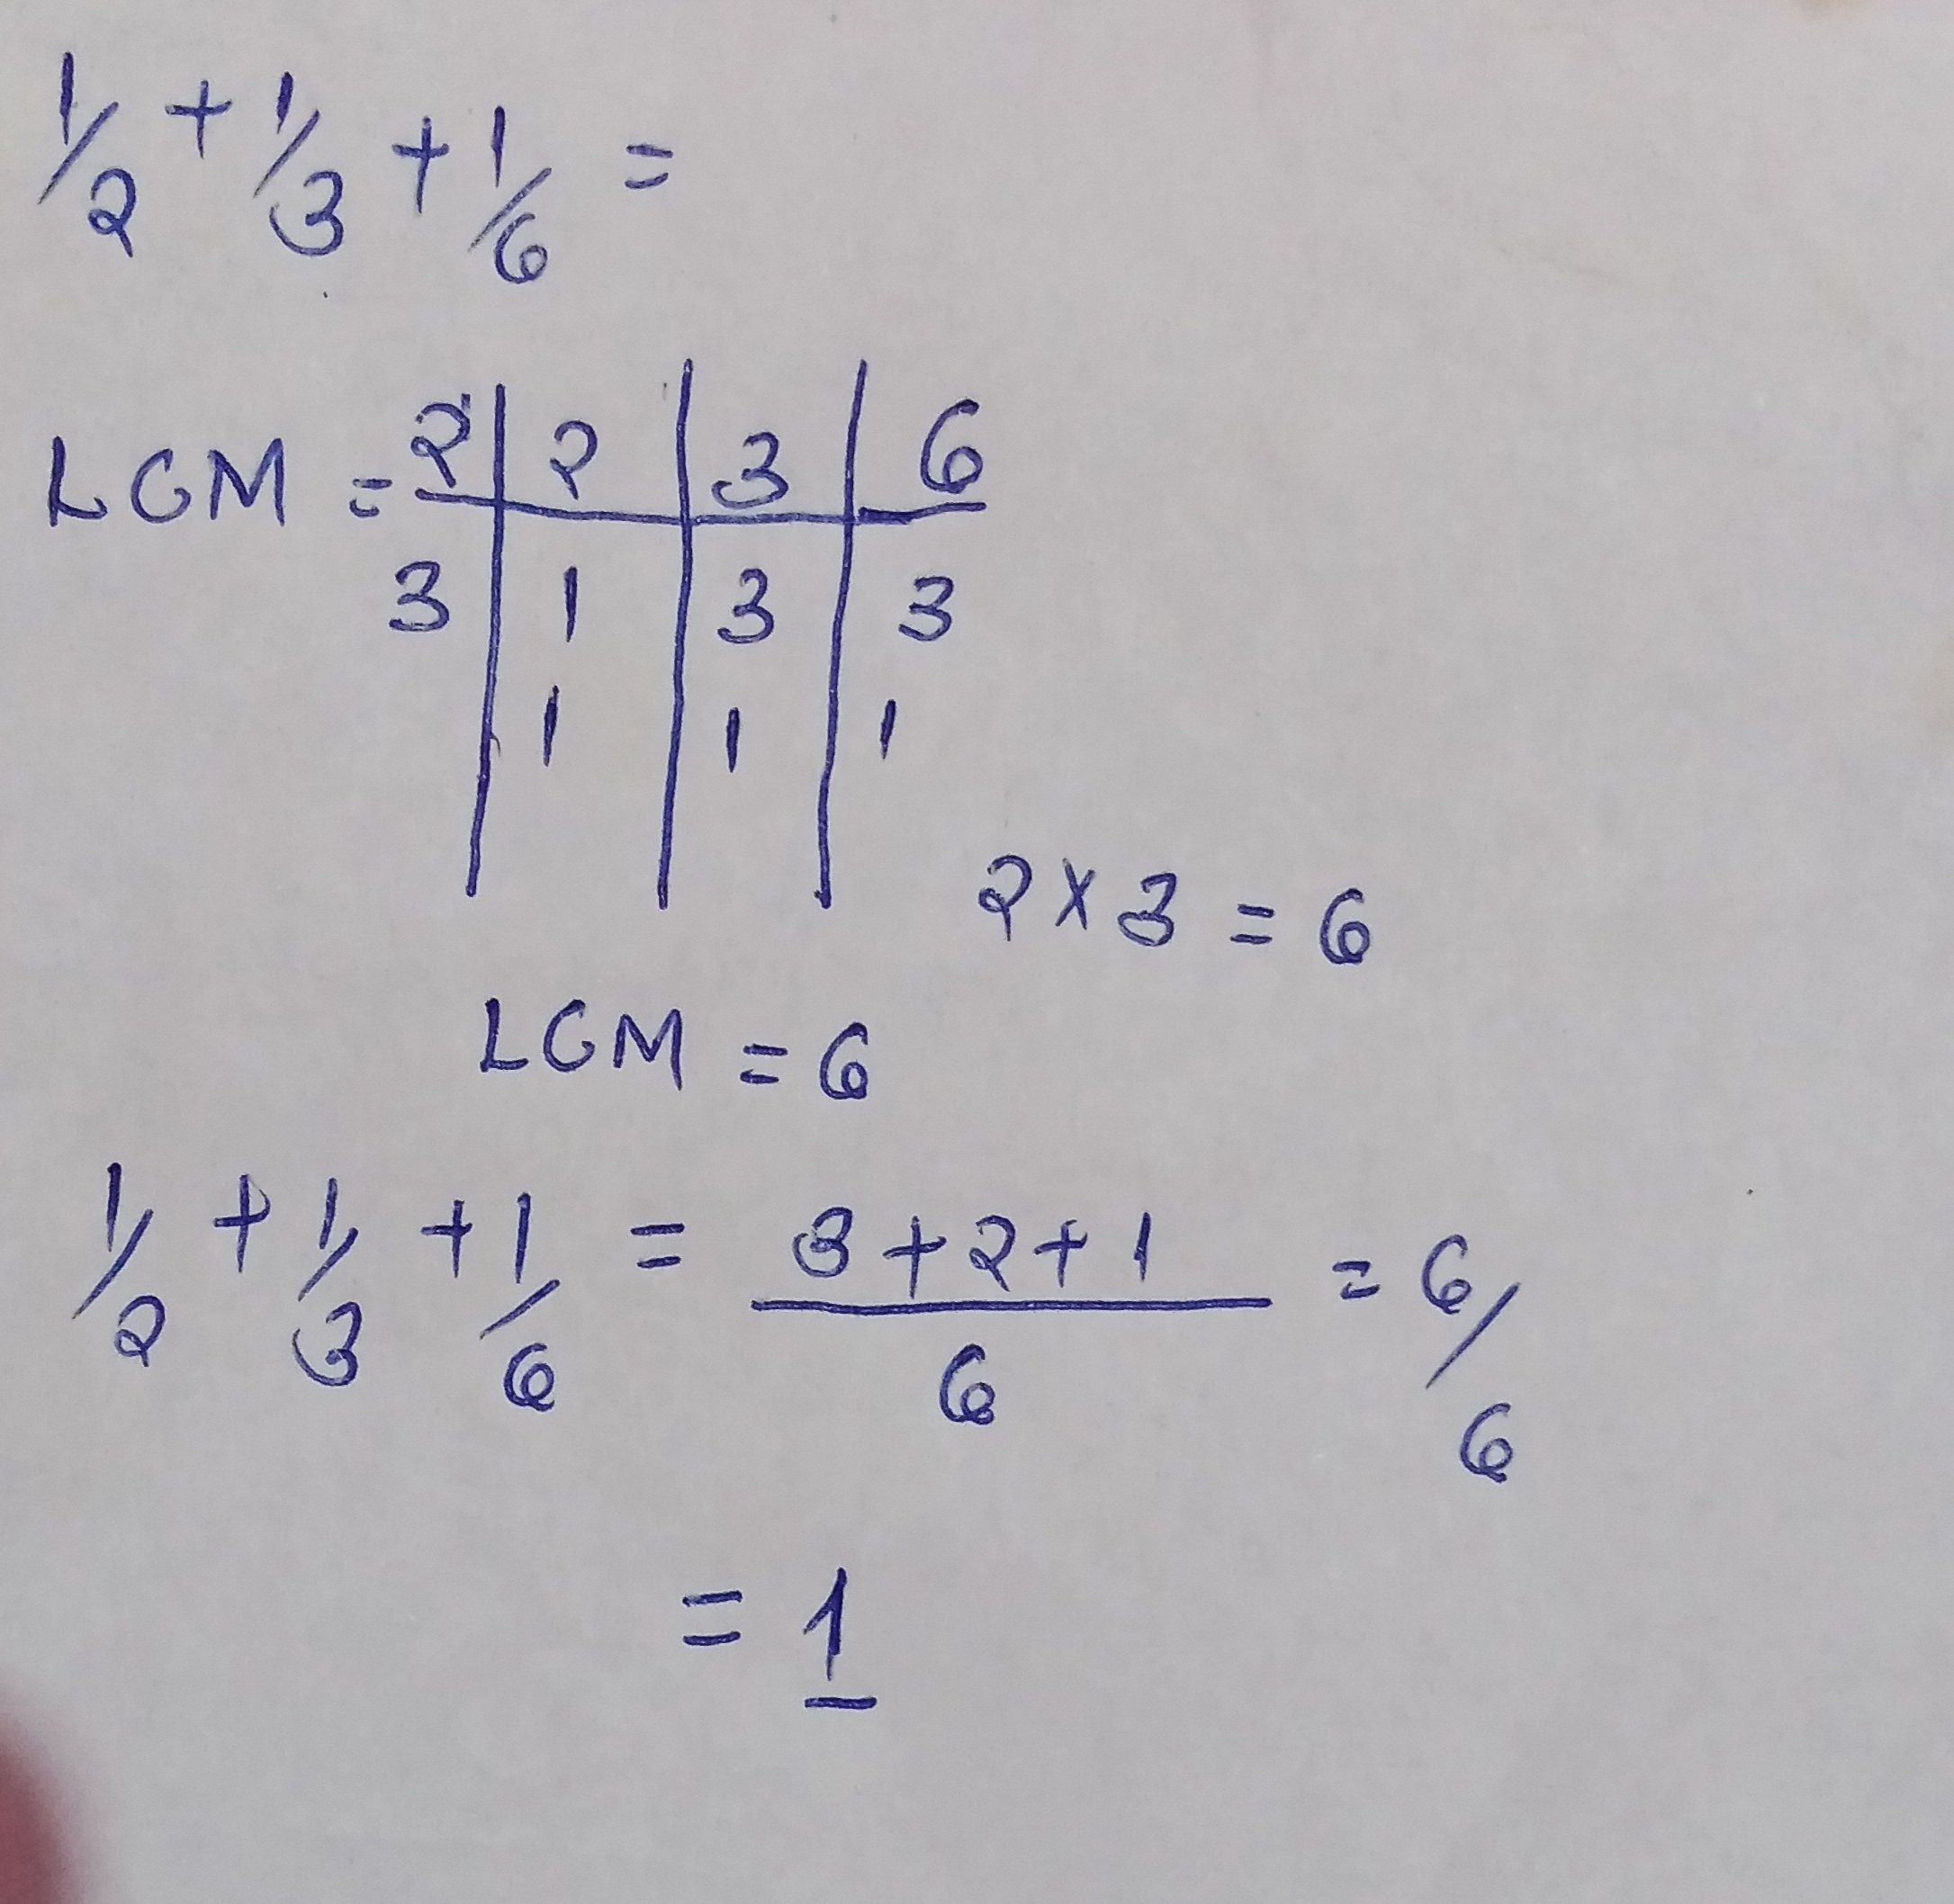 1/2 + 1/3 + 1/6 =
LCM = 2 | 2 | 3 | 6
3 | 1 | 3 | 3
| 1 | 1 | 1
2 × 3 = 6
LCM = 6
1/2 + 1/3 + 1/6 = 3+2+1/6 = 6/6
= 1